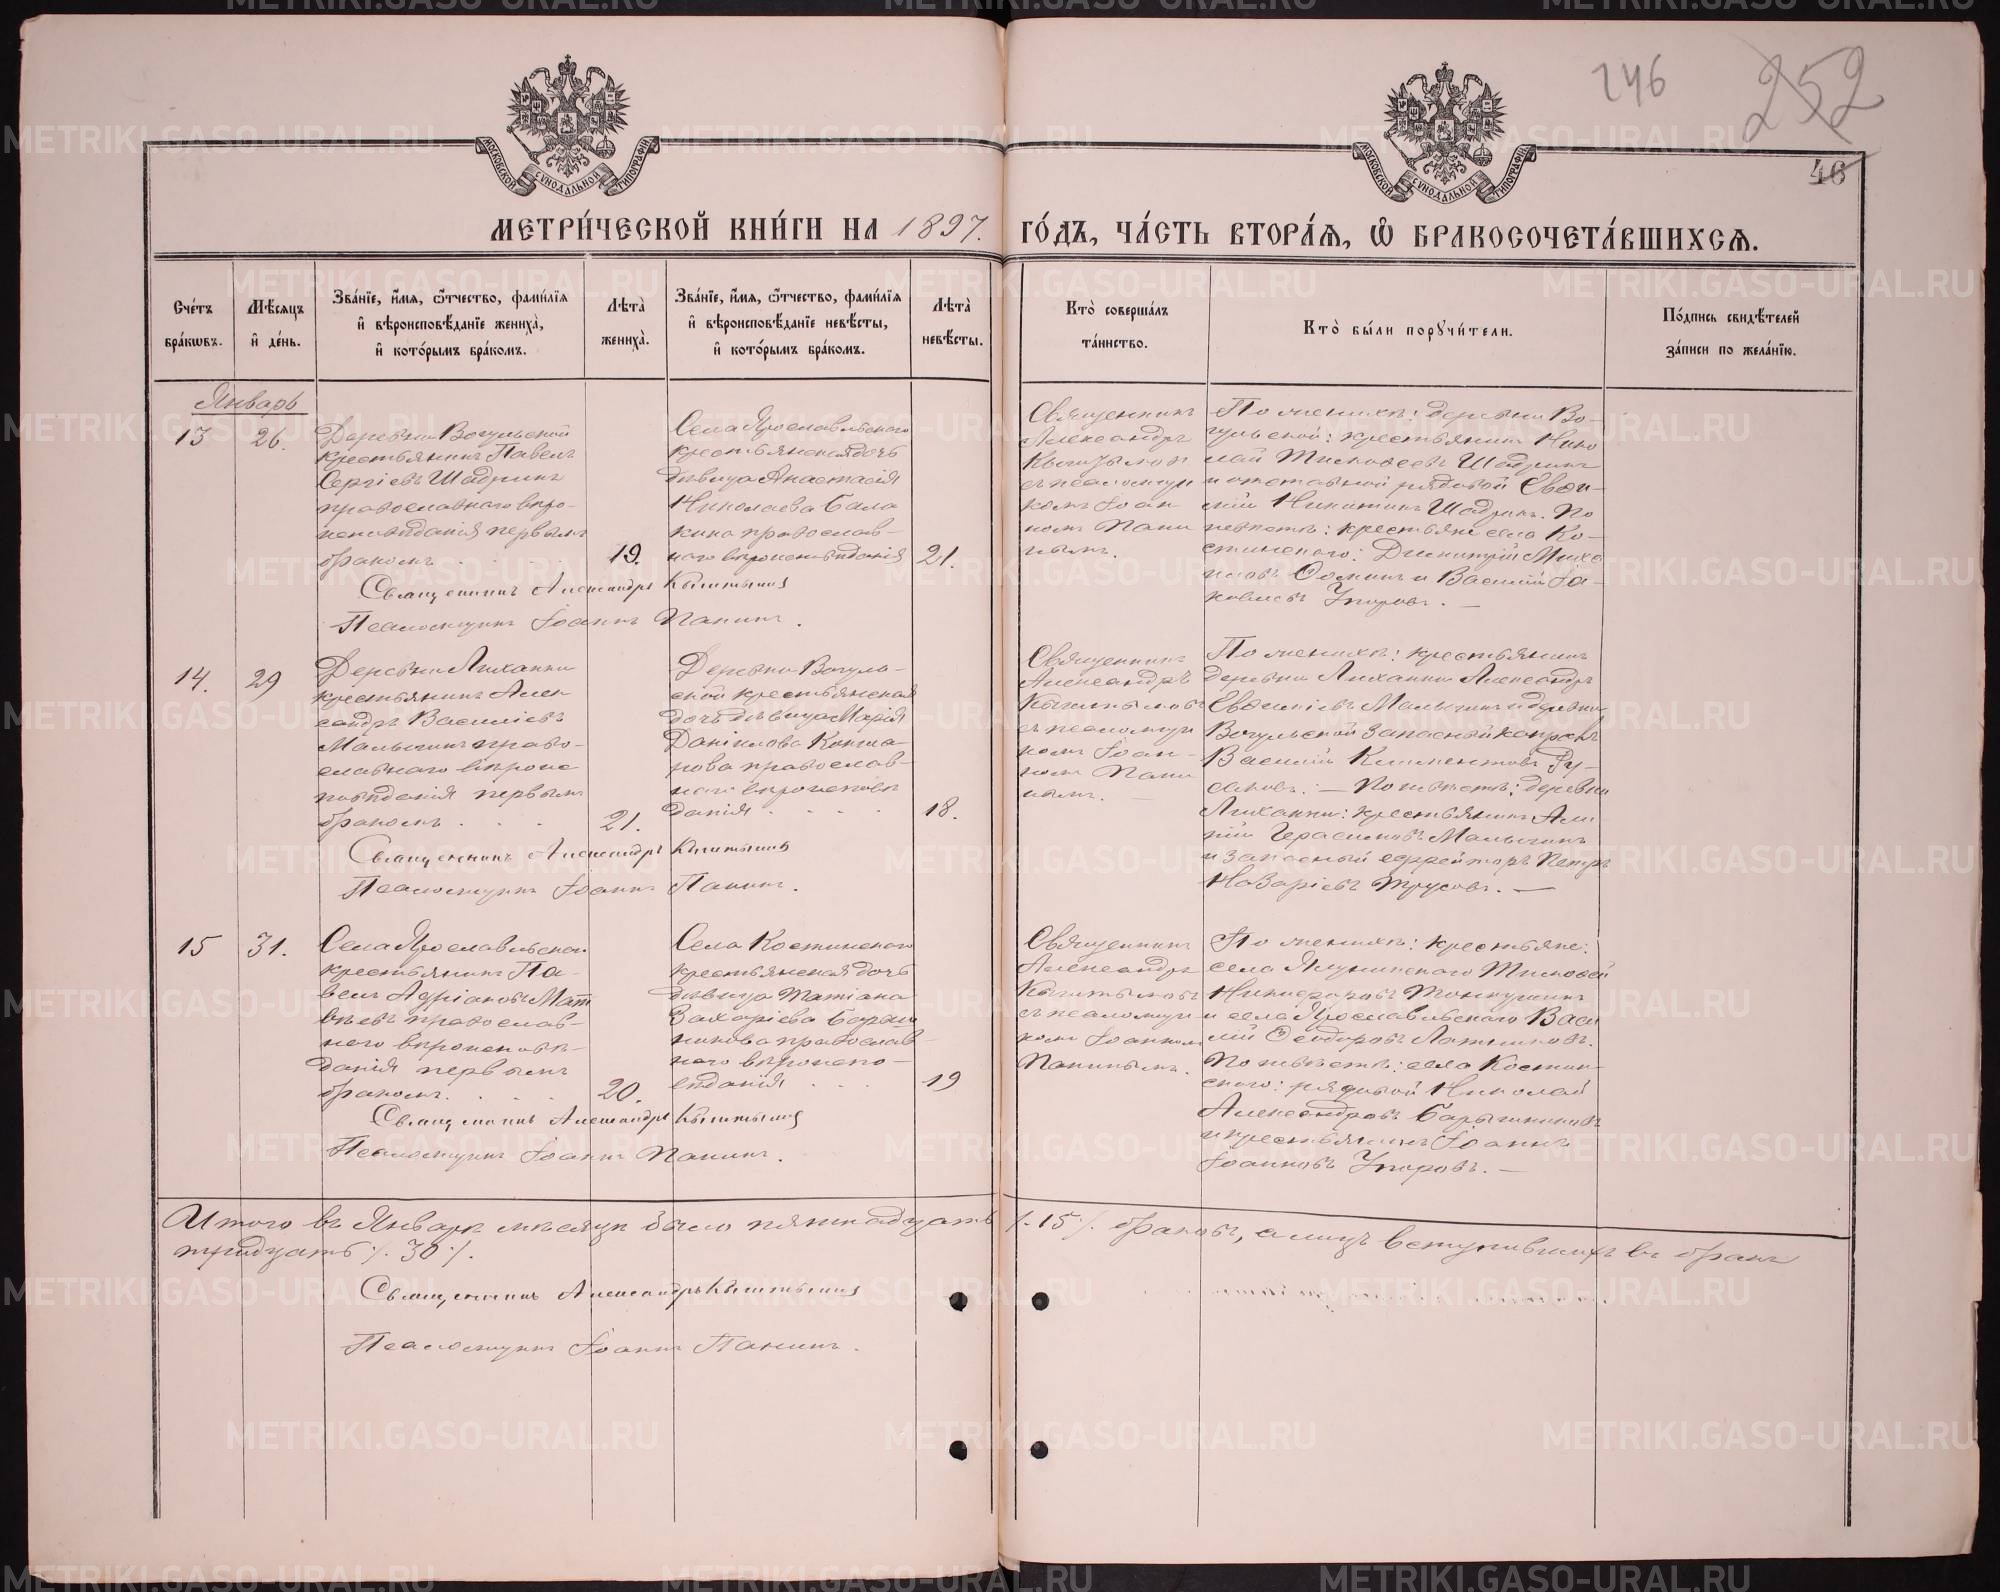 246
252
46
МОСКОВСКОЙ СѴНОДАЛЬНОЙ ТИПОГРАФІИ
МОСКОВСКОЙ СѴНОДАЛЬНОЙ ТИПОГРАФІИ
МЕТРИ́ЧЕСКОЙ КНИ́ГИ НА 1897. ГО́ДЪ, ЧА́СТЬ ВТОРА́Ѧ, Ѽ БРАКОСОЧЕТА́ВШИХСѦ.
Сче́тъ
бра́кѡвъ.
Мѣ́сѧцъ
и҆ де́нь.
Зва́нїе, и҆́мѧ, ѻ҆́тчество, фами́лїѧ
и҆ вѣроисповѣ́данїе жениха̀,
и҆ кото́рымъ бра́комъ.
Лѣта̀
жениха̀.
Зва́нїе, и҆́мѧ, ѻ҆́тчество, фами́лїѧ
и҆ вѣроисповѣ́данїе невѣ́сты,
и҆ кото́рымъ бра́комъ.
Лѣта̀
невѣ́сты.
Кто̀ соверша́лъ
та́инство.
Кто̀ бы́ли порꙋчи́тели.
По́дпись свидѣ́телей
за́писи по жела́нїю.
Январь
13
26.
Деревни Вогульской
крестьянинъ Павелъ
Сергіевъ Шадринъ
православнаго вѣро-
исповѣданія первымъ
бракомъ . . . .
19.
Села Ярославльскаго
крестьянская дочь
дѣвица Анастасія
Николаева Бала
кина православ-
наго вѣроисповѣданія
21.
Священникъ
Александръ
Кыштымов
съ псаломщи
комъ Іоан
номъ Пани
нымъ.
По женихѣ: деревни Во-
гульской: крестьянинъ Нико
лай Тимофеевъ Шадринъ
и отставной рядовой Евѳи-
мій Никитинъ Шадринъ. По
невѣстѣ: крестьяне села Ко-
стинскаго: Димитрій Миха
иловъ Ѳоминъ и Василій Іа-
ковлевъ Упоровъ. —
Священникъ Александръ Кыштымов
Псаломщикъ Іоаннъ Панинъ.
14.
29
Деревни Лиханки
крестьянинъ Алек
сандръ Василіевъ
Малыгинъ право-
славнаго вѣроис
повѣданія первымъ
бракомъ . . .
21.
Деревни Вогуль-
ской крестьянская
дочь дѣвица Марія
Даніилова Конша-
рова православ-
наго вѣроисповѣ
данія . . .
18.
Священникъ
Александръ
Кыштымовъ
съ псаломщи
комъ Іоан-
номъ Пани
нымъ. —
По женихѣ: крестьянинъ
деревни Лиханки Александръ
Евѳиміевъ Малыгинъ и деревни
Вогульской запасной
Василій Климентовъ Гу-
сельковъ. — По невѣстѣ: деревни
Лиханки: крестьянинъ Али
пій Герасимовъ Малыгинъ
и запасный ефрейторъ Петръ
Назаріевъ Трусовъ. —
Священникъ Александръ Кыштымов
Псаломщикъ Іоаннъ Панинъ.
15
31.
Села Ярославльска
крестьянинъ Па-
велъ Адріановъ Мат
вѣевъ православ-
наго вѣроисповѣ-
данія первымъ
бракомъ. . . .
20.
Села Костинскаго
крестьянская дочь
дѣвица Татіана
Захаріева Барыш
никова православ
наго вѣроиспо-
вѣданія . . .
19
Священникъ
Александръ
Кыштымовъ
съ псаломщи
комъ Іоанномъ
Панинымъ.
По женихѣ: крестьяне:
села Ялунинскаго Тимофей
Никифоровъ Тонкушинъ
и села Ярославльскаго Васи
лій Ѳеодоровъ Латниковъ.
По невѣстѣ: села Костин-
скаго: рядовой Николай
Александровъ Барышниковъ
и крестьянинъ Іоаннъ
Іоанновъ Упоровъ. —
Священникъ Александръ Кыштымов
Псаломщикъ Іоаннъ Панинъ.
Итого въ Январѣ мѣсяцѣ было пятнадцать /. 15 ./. браковъ, а лицъ вступившихъ въ бракъ
тридцать ./. 30 ./.
Священникъ Александръ Кыштымов
Псаломщикъ Іоаннъ Панинъ.
METRIKI.GASO-URAL.RU